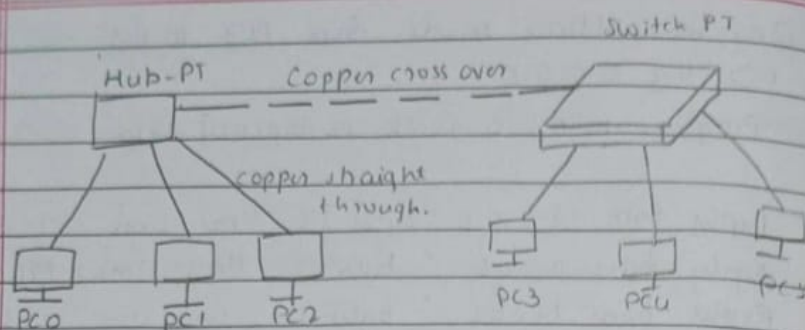 Switch PT
Hub-PT
Copper cross over
copper straight
through.
PC0
PC1
PC2
PC3
PC4